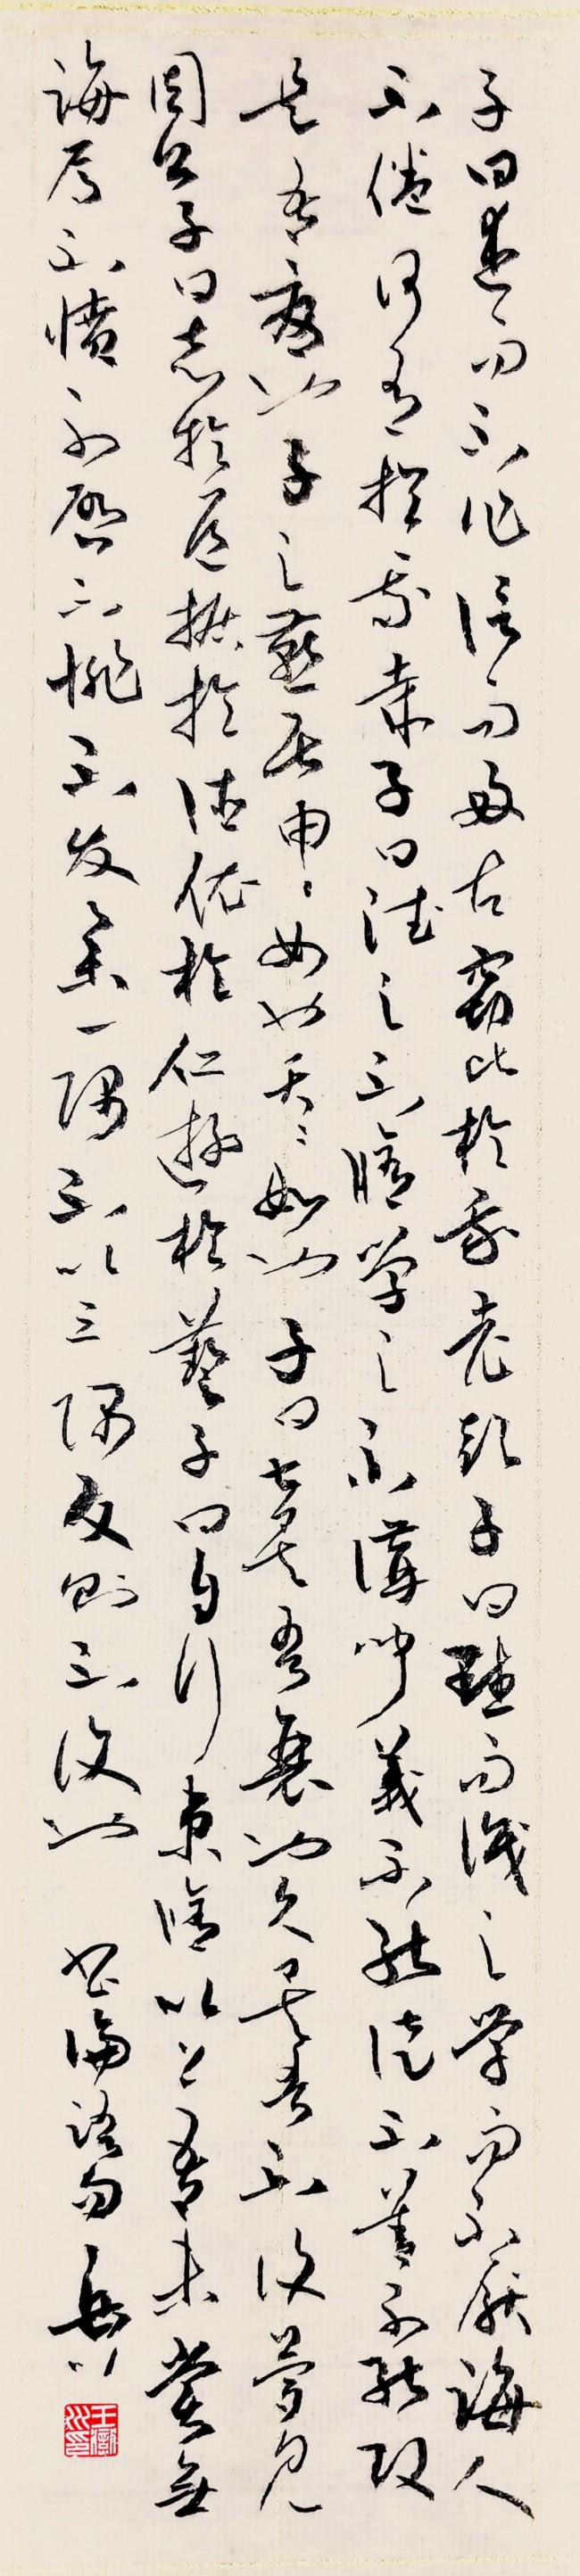 子曰述而不作信而好古竊比於我老彭子曰默而識之学而不厭誨人
不倦何有於我哉子曰德之不脩学之不講聞義不能徙不善不能改
是吾憂也子之燕居申〻如也夭〻如也子曰甚矣吾衰也久矣吾不復夢見
周公子曰志於道據於德依於仁遊於藝子曰自行束脩以上吾未嘗無
誨焉不憤不啟不悱不發舉一隅不以三隅反則不復也 書論語句 岳川
王嶽川印